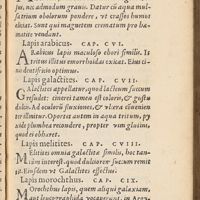 ius, nec admodum grauis. Datur cū aqua mul-
sa tritum obolorum pondere, vt crassos humo
elicit. Sunt qui magnetem crematum pro hæ-
matite vendant.
Lapis arabicus. CAP. CVI.
ARabicus lapis maculoso ebori similis. Is
tritus illitus emorrhoidas exicat. Eius ci-
nis dentifricio optimus.
Lapis galactites. CAP. CVII.
GAlactites appellatur, quod lacteum succum
resudet: cinerei tamen est coloris, & gustu
dulcis. Ad oculorū fluxiones, & vlcera cōmuniter
illinitur. Oportet autem in aqua tritum, py
xide plumbea recondere, propter vim glutinosam
quæ ei adhæret.
Lapis melitites. CAP. CVIII.
MElitites omnia galactitæ similis, hoc tan-
tùm interest, quod dulciorem succum remit
tit. Eiusdem vt Galactites effectus.
Lapis morochthus. CAP. CIX.
MOrochthus lapis, quem aliqui galaxiam,
aut leucographida vocauerunt, in Aegy-